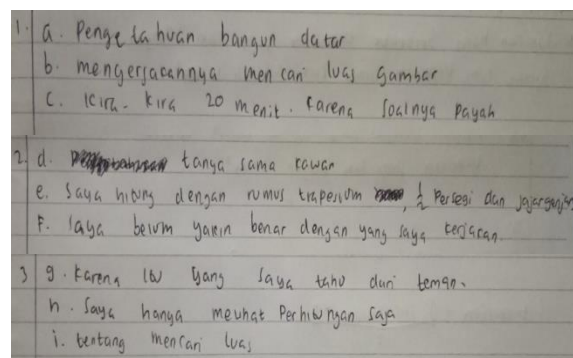 1. a. Pengetahuan bangun datar
b. mengerjacannya mencari luas gambar
c. Kira-kira 20 menit. Karena soalnya payah
2. d. tanya sama kawan
e. Saya hitung dengan rumus trapesium, 1/2 Persegi dan jajargenjang
F. saya belum yakin benar dengan yang saya kerjacan.
3 g. Karena itu yang saya tahu dari teman.
h. Saya hanya melihat Perhitungan saja
i. tentang mencari luas